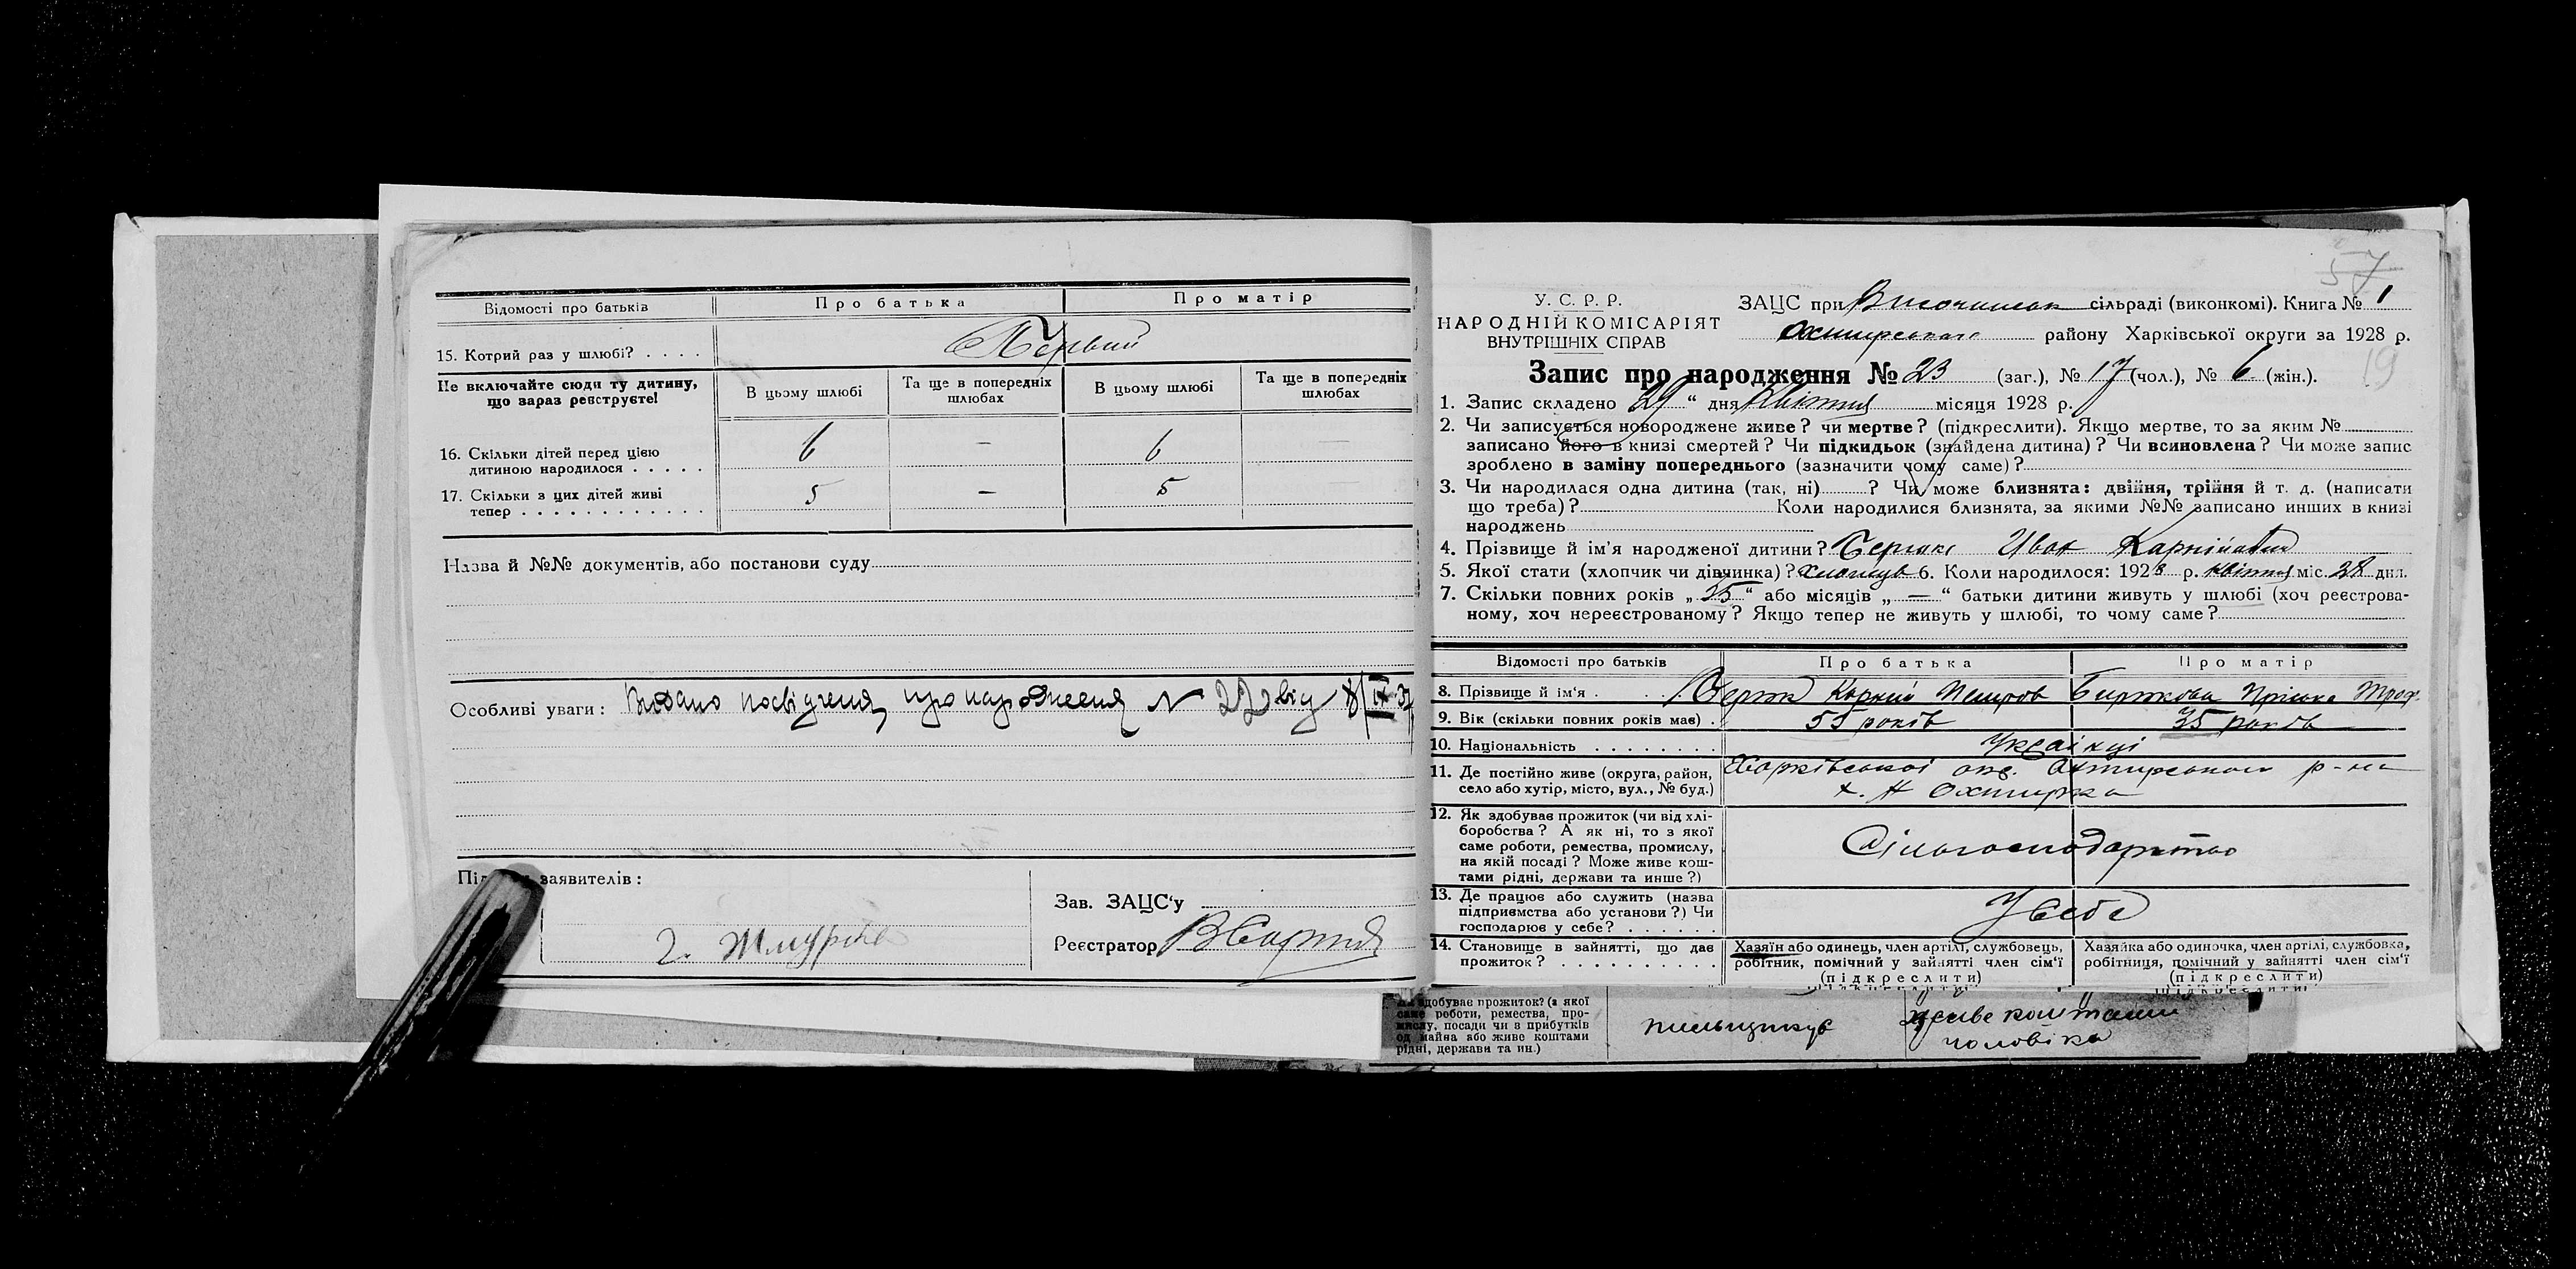 Відомості про батьків
Про батька
Про матір
15. Котрий раз у шлюбі? . . . .
Первий
Не включайте сюди ту дитину,
що зараз реєструєте!
В цьому шлюбі
Та ще в попередніх
шлюбах
В цьому шлюбі
Та ще в попередніх
шлюбах
16. Скільки дітей перед цією
дитиною народилося . . . . .
6 — 6 —
17. Скільки з цих дітей живі
тепер . . . . . . . . . . . .
5 — 5 —
Назва й №№ документів, або постанови суду
Особливі уваги: Видано посвідченя про народженя N 22 від 8/IX 37
заявителів:
Зав. ЗАЦС'у
Реєстратор
57
19
У. С. Р. Р.
НАРОДНІЙ КОМІСАРІЯТ
ВНУТРІШНІХ СПРАВ
ЗАЦС при сільраді (виконкомі). Книга № 1
Охтирського району Харківської округи за 1928 р.
Запис про народження № 23 (заг.), № 17 (чол.), № 6 (жін.).
1. Запис складено 29 " дня Квітня місяця 1928 р.
2. Чи записується новороджене живе? чи мертве? (підкреслити). Якщо мертве, то за яким №
записано його в книзі смертей? Чи підкидьок (знайдена дитина)? Чи всиновлена? Чи може запис
зроблено в заміну попереднього (зазначити чому саме)?
3. Чи народилася одна дитина (так, ні) ? Чи може близнята: двійня, трійня й т. д. (написати
що треба)? Коли народилися близнята, за якими №№ записано инших в книзі
народжень
4. Прізвище й ім'я народженої дитини? Иван
5. Якої стати (хлопчик чи дівчинка)? хлопець 6. Коли народилося: 1928 р. квітня міс. 28 дня.
7. Скільки повних років „ " або місяців „ — " батьки дитини живуть у шлюбі (хоч реєстрова-
ному, хоч нереєстрованому? Якщо тепер не живуть у шлюбі, то чому саме?
Відомості про батьків
Про батька
Про матір
8. Прізвище й ім'я . . . . . Корній Петров
9. Вік (скільки повних років має) . 55 років 35 років
10. Національність . . . . . . . . Українці
11. Де постійно живе (округа, район,
село або хутір, місто, вул., № буд.)
Харківської окр. Охтирського р-на
х. Н Охтирка
12. Як здобуває прожиток (чи від хлі-
боробства? А як ні, то з якої
саме роботи, ремества, промислу,
на якій посаді? Може живе кош-
тами рідні, держави та инше?)
13. Де працює або служить (назва
підприємства або установи?) Чи
господарює у себе? . . . . . .
У себе
14. Становище в зайнятті, що дає
прожиток? . . . . . . . . . .
Хазяїн або одинець, член артілі, службовець,
робітник, помічний у зайнятті член сім'ї
(підкреслити)
Хазяйка або одиночка, член артілі, службовка,
робітниця, помічний у зайнятті член сім'ї
(підкреслити)
здобуває прожиток? (з якої
саме роботи, ремества, про-
мислу, посади чи з прибутків
од майна або живе коштами
рідні, держави та ин.)
живе коштами
чоловіка